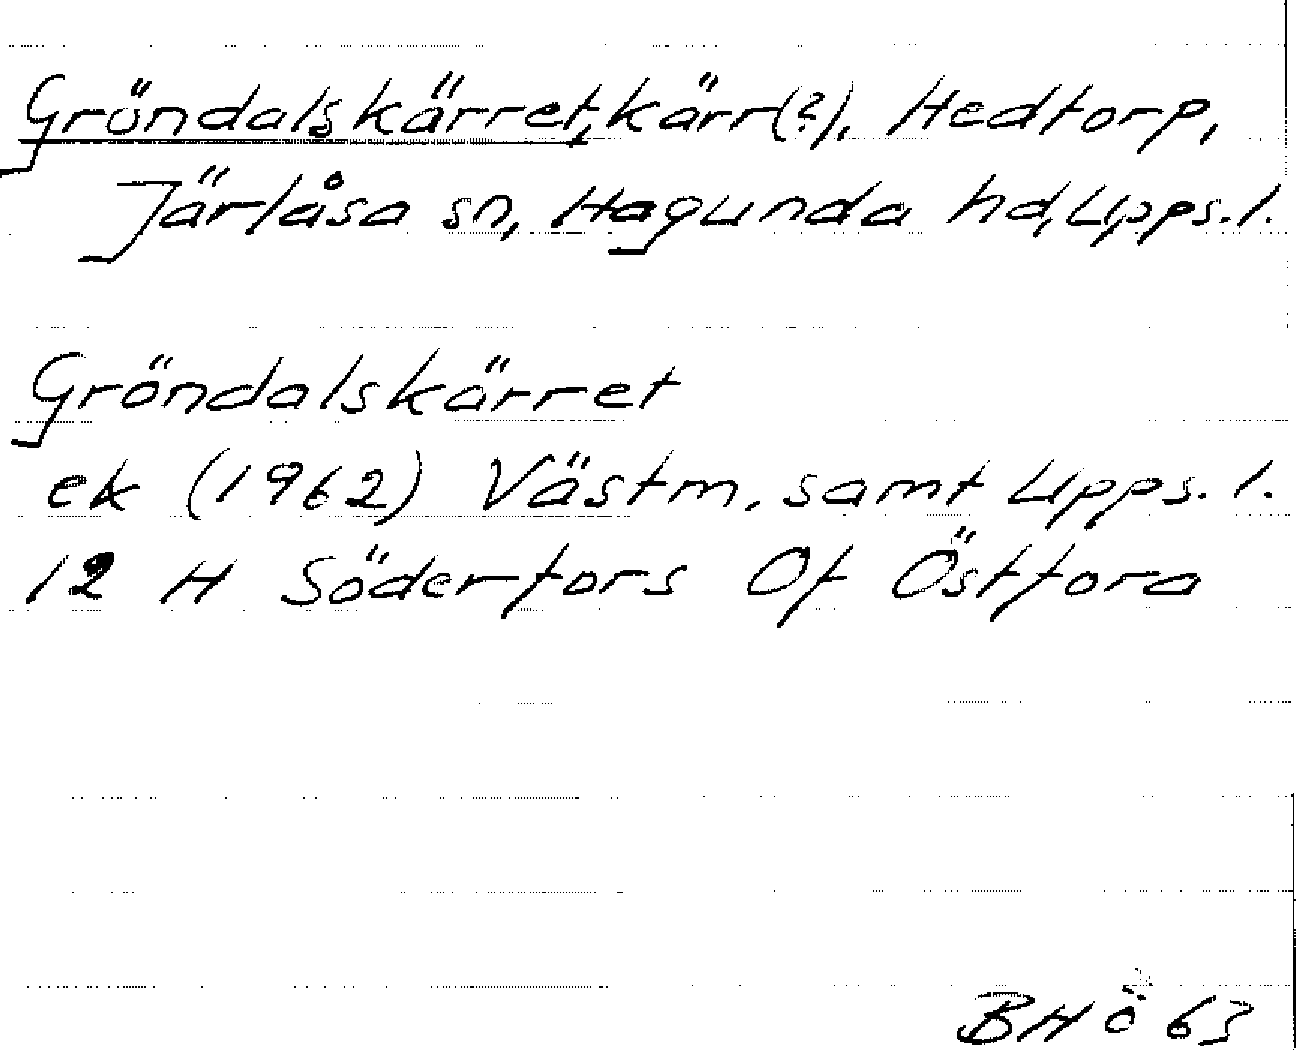 Gröndalskärret, kärr(?), Hedtorp,
Järlåsa sn, Hagunda hd, Upps. l.
Gröndalskärret
ek (1962) Västm. samt Upps. l.
12 H Söderfors Of Östfora
BHÖ 63